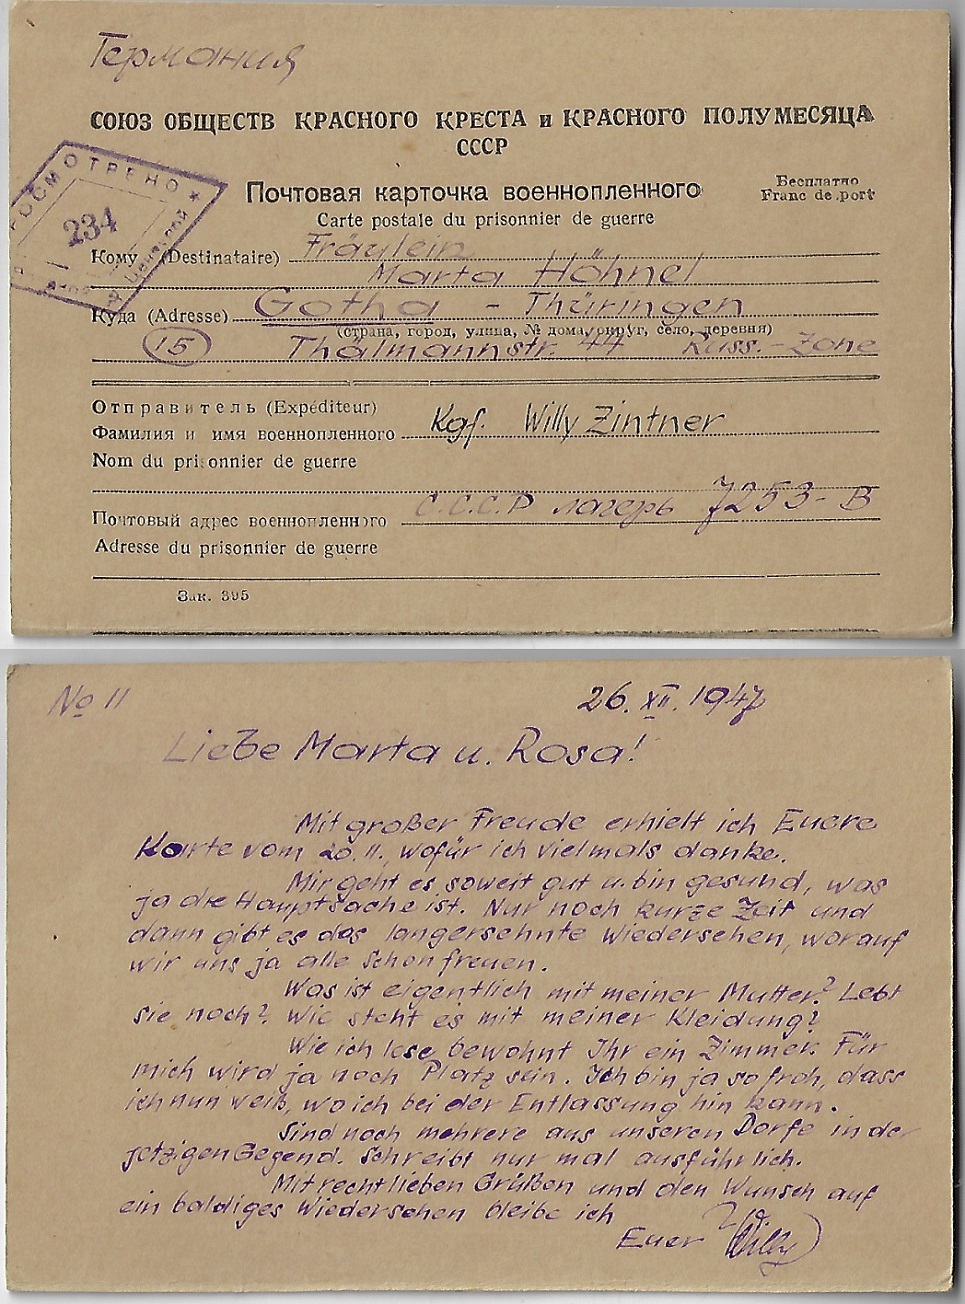 Германия
СОЮЗ ОБЩЕСТВ КРАСНОГО КРЕСТА и КРАСНОГО ПОЛУМЕСЯЦА
СССР
Почтовая карточка военнопленного
Бесплатно
Franc de port
Carte postale du prisonnier de guerre
РОСМОТРЕНО
234
Кому (Destinataire) Fräulein
Marta Höhnel
Куда (Adresse) Gotha - Thüringen
(страна, город, улица, № дома, округ, село, деревня)
15 Thälmannstr. 44 Russ.-Zone
Отправитель (Expéditeur)
Фамилия и имя военнопленного Kgf. Willy Zintner
Nom du prisonnier de guerre
Почтовый адрес военнопленного С.С.С.Р лагерь 7253-В
Adresse du prisonnier de guerre
Зак. 395
No 11
26. XII. 1947
Liebe Marta u. Rosa!
Mit großer Freude erhielt ich Euere
Karte vom 20.11., wofür ich vielmals danke.
Mir geht es soweit gut u. bin gesund, was
ja die Hauptsache ist. Nur noch kurze Zeit und
dann gibt es das langersehnte Wiedersehen, worauf
wir uns ja alle schon freuen.
Was ist eigentlich mit meiner Mutter? Lebt
sie noch? Wie steht es mit meiner Kleidung?
Wie ich lese bewohnt Ihr ein Zimmer. Für
mich wird ja noch Platz sein. Ich bin ja so froh, dass
ich nun weiß, wo ich bei der Entlassung hin kann.
Sind noch mehrere aus unseren Dorfe in der
jetzigen Gegend. Schreibt nur mal ausführlich.
Mit recht lieben Grüßen und den Wunsch auf
ein baldiges Wiedersehen bleibe ich
Euer Willy